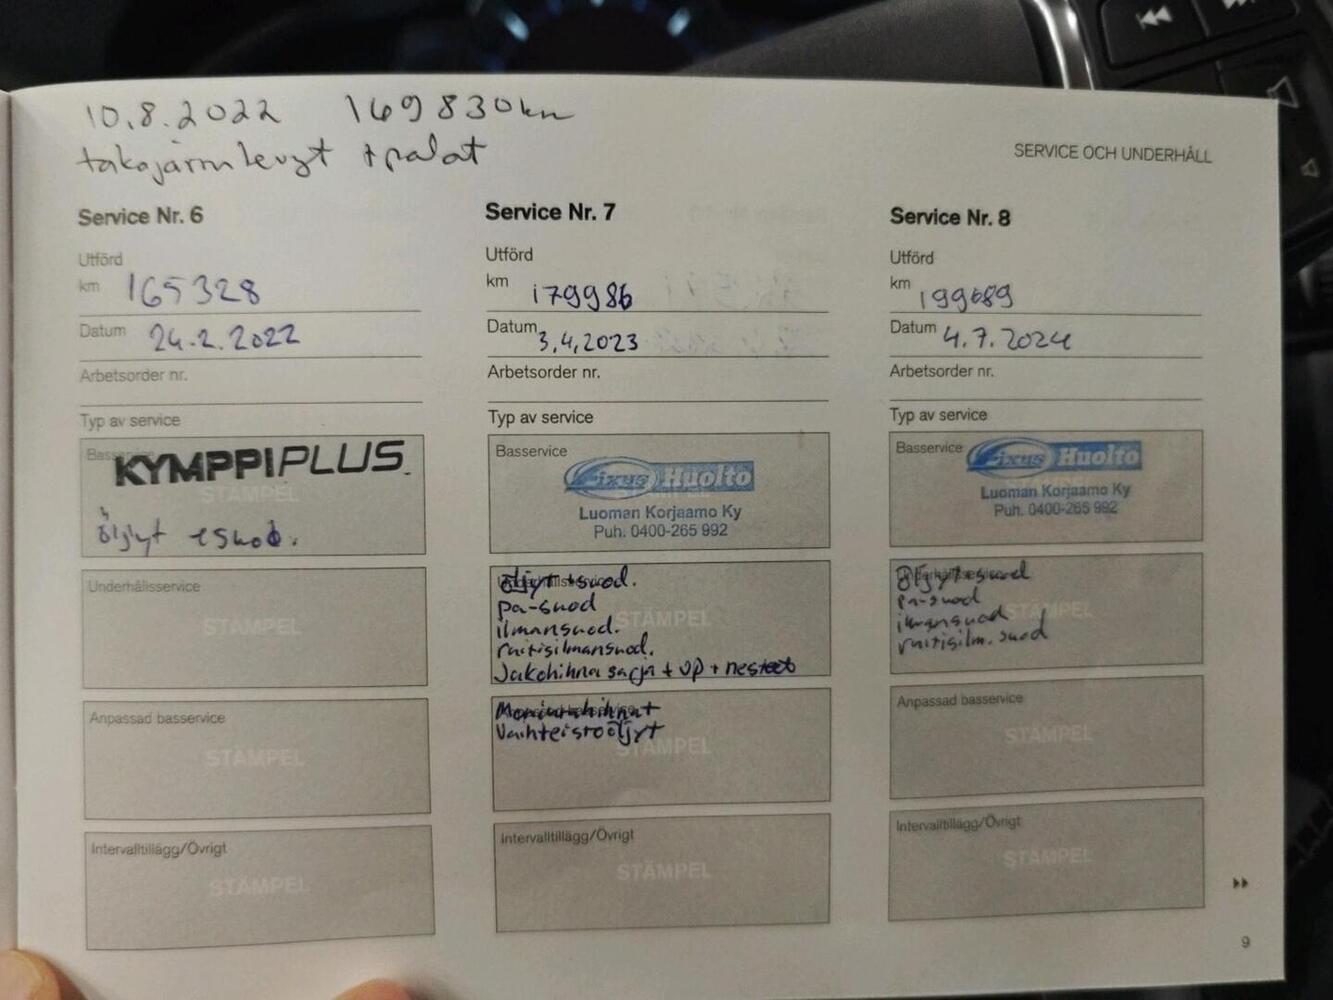 10.8.2022 169830km
takajarrulevyt + palat
SERVICE OCH UNDERHÅLL
Service Nr. 6
Utförd
km 165328
Datum 24.2.2022
Arbetsorder nr.
Typ av service
KYMPPIPLUS
STÄMPEL
öljyt + suod.
Underhållsservice
STÄMPEL
Anpassad basservice
STÄMPEL
Intervalltillägg/Övrigt
STÄMPEL
Service Nr. 7
Utförd
km 179986
Datum 3,4,2023
Arbetsorder nr.
Typ av service
Basservice
Fixus Huolto
Luoman Korjaamo Ky
Puh. 0400-265 992
öljyt+suod.
pa-suod
STÄMPEL
ilmansuod.
raitisilmansuod.
Jakohihna sarja + VP + nesteet
Moniurahihnat
Vaihteistoöljyt
STÄMPEL
Intervalltillägg/Övrigt
STÄMPEL
Service Nr. 8
Utförd
km 199689
Datum 4.7.2024
Arbetsorder nr.
Typ av service
Basservice
Fixus Huolto
Luoman Korjaamo Ky
Puh. 0400-265 992
öljyt+suod
pa-suod
STÄMPEL
ilmansuod
raitisilm. suod
Anpassad basservice
STÄMPEL
Intervalltillägg/Övrigt
STÄMPEL
9